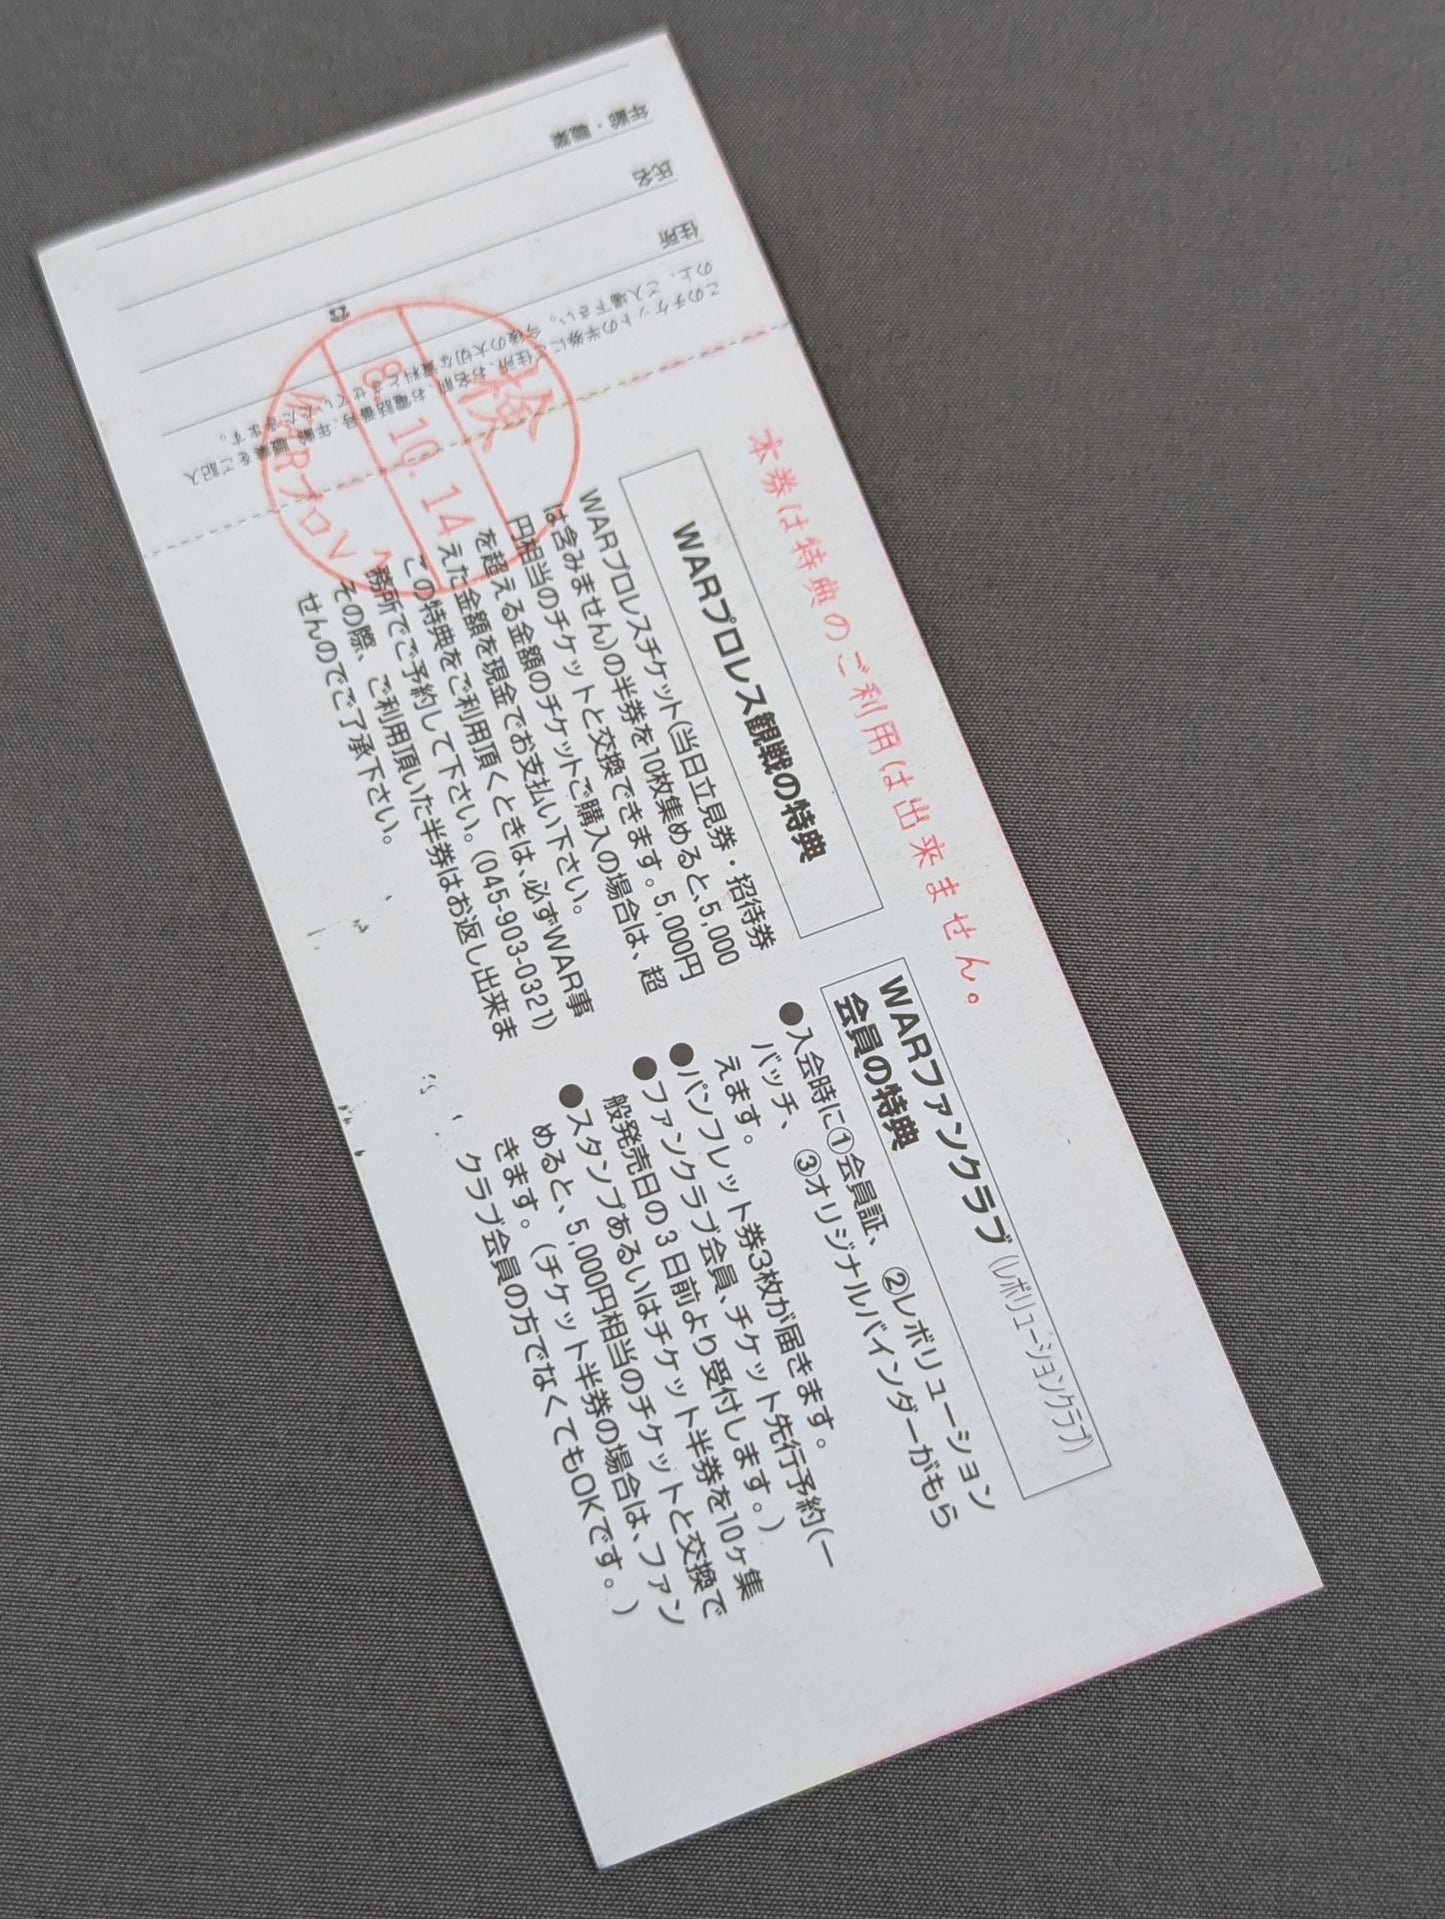 本券は特典のご利用は出来ません。
WARプロレス観戦の特典
WARプロレスチケット(当日立見券・招待券
は含みません)の半券を10枚集めると、5,000
円相当のチケットと交換できます。5,000円
を超える金額のチケットご購入の場合は、超
えた金額を現金でお支払い下さい。
この特典をご利用頂くときは、必ずWAR事
務所でご予約して下さい。(045-903-0321)
その際、ご利用頂いた半券はお返し出来ま
せんのでご了承下さい。
WARファンクラブ(レボリューションクラブ)
会員の特典
●入会時に①会員証、②レボリューション
バッチ、③オリジナルバインダーがもら
えます。
●パンフレット券3枚が届きます。
●ファンクラブ会員、チケット先行予約(一
般発売日の3日前より受付します。)
●スタンプあるいはチケット半券を10ヶ集
めると、5,000円相当のチケットと交換で
きます。(チケット半券の場合は、ファン
クラブ会員の方でなくてもOKです。)
検
8.10.14
プロレス
このチケットの半券に、住所、お名前、お電話番号、年齢、職業をご記入
の上、ご入場下さい。今後の大切な資料とさせていただきます。
住所
☎
氏名
年齢・職業